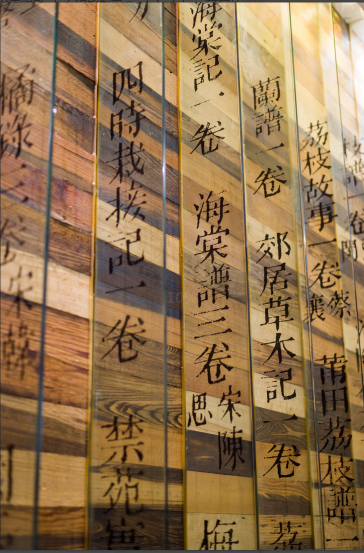 枝譜一卷
荔枝故事一卷 蔡襄 莆田荔枝譜一
蘭譜一卷 郊居草木記一卷 荔
海棠記一卷 海棠譜三卷 宋陳思 梅
四時栽接記一卷 禁苑實
橘錄三卷 宋韓